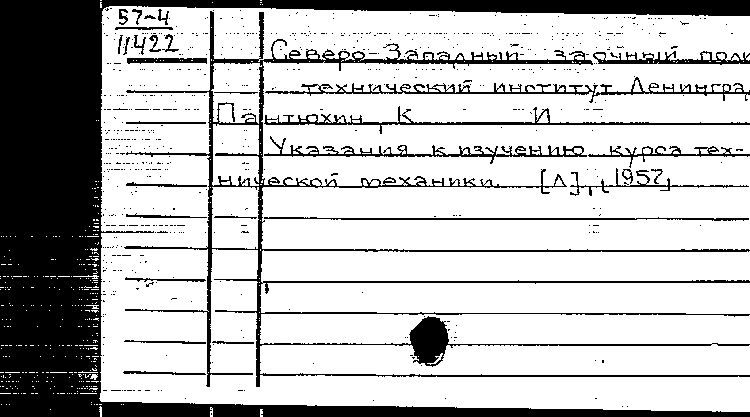 57-4
11422
Северо-Западный заочный поли
технический институт Ленингра
Пантюхин, К И
Указания к изучению курса тех-
нической механики. [Л], [1957]